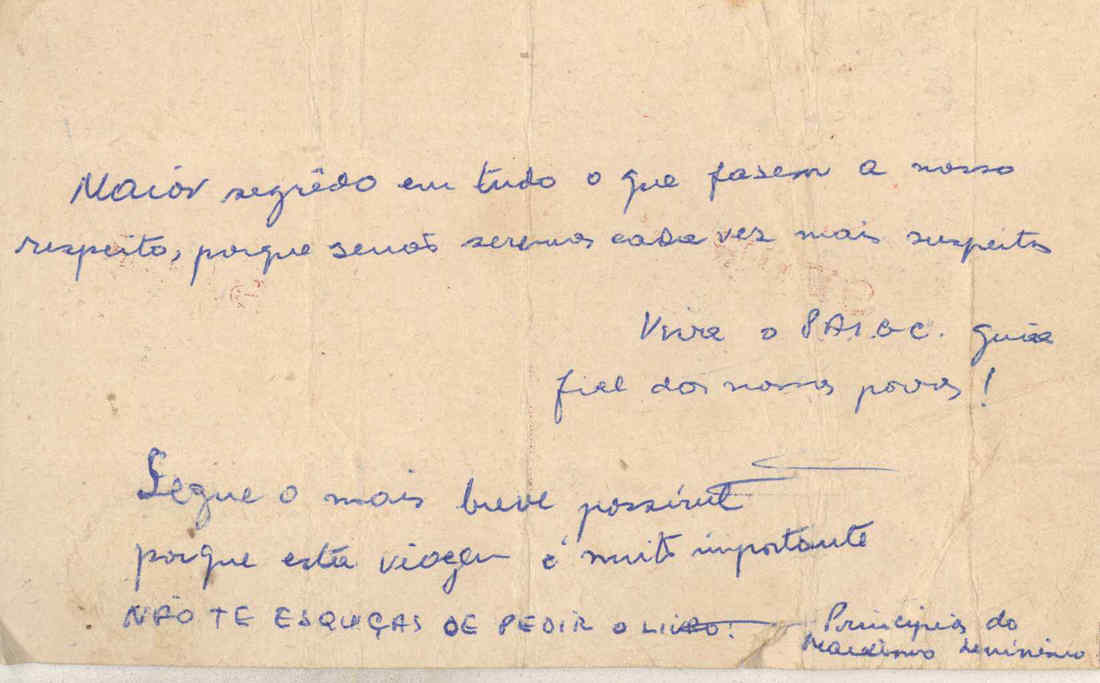 Maiór segrêdo em tudo o que fasem a nosso
respeito, porque senão seremos cada vez mais suspeitos
Viva o P.A.I.G.C. guia
fiel dos nossos povos!
Segue o mais breve possivel
porque esta viagem é muito importante
NÃO TE ESQUEÇAS DE PEDIR O LIVRO: Principios do
Marxismo Leninismo